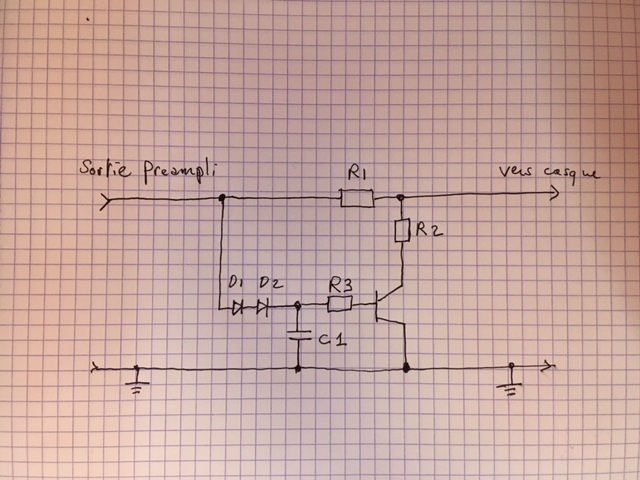 Sortie Preampli
R1
vers casque
R2
D1 D2
R3
C1